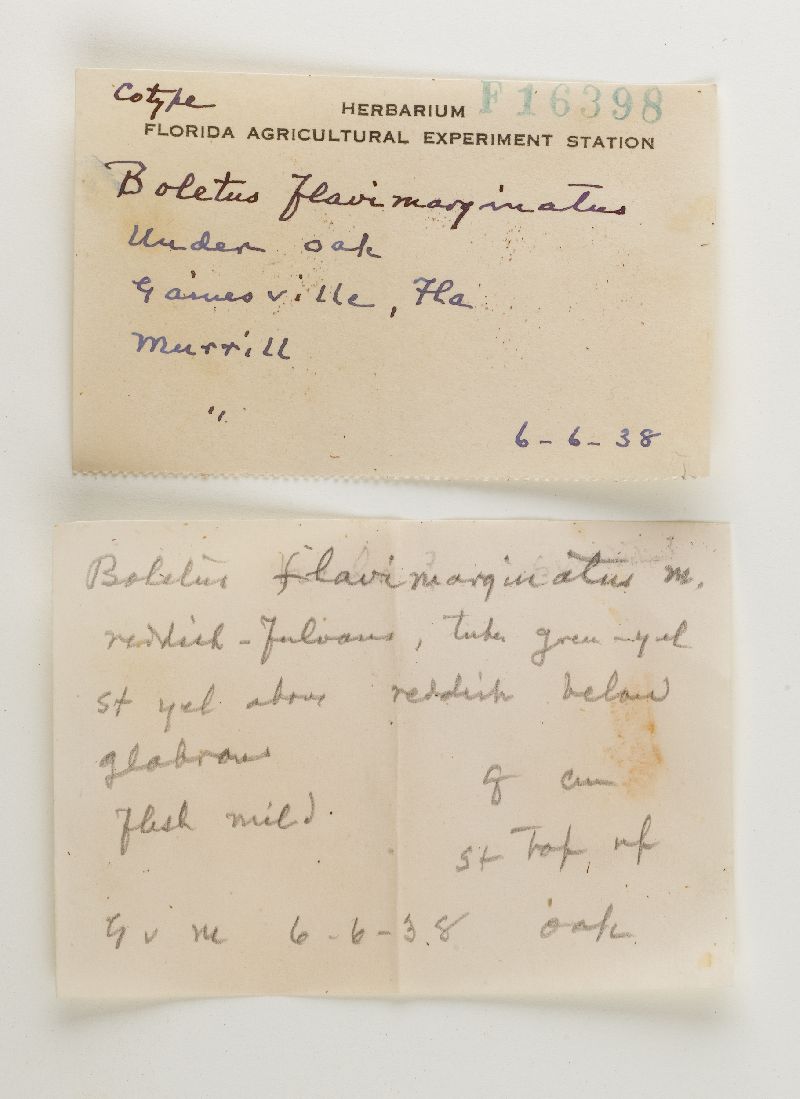 Cotype
F16398
HERBARIUM
FLORIDA AGRICULTURAL EXPERIMENT STATION
Boletus flavimarginatus
Under oak
Gainesville, Fla
Murrill
"
6-6-38
Boletus flavimarginatus M.
reddish-fulvous, tubes green-yel
st yel above reddish below
glabrous
8 cm
Flesh mild.
st Top
G v m 6-6-38 oak